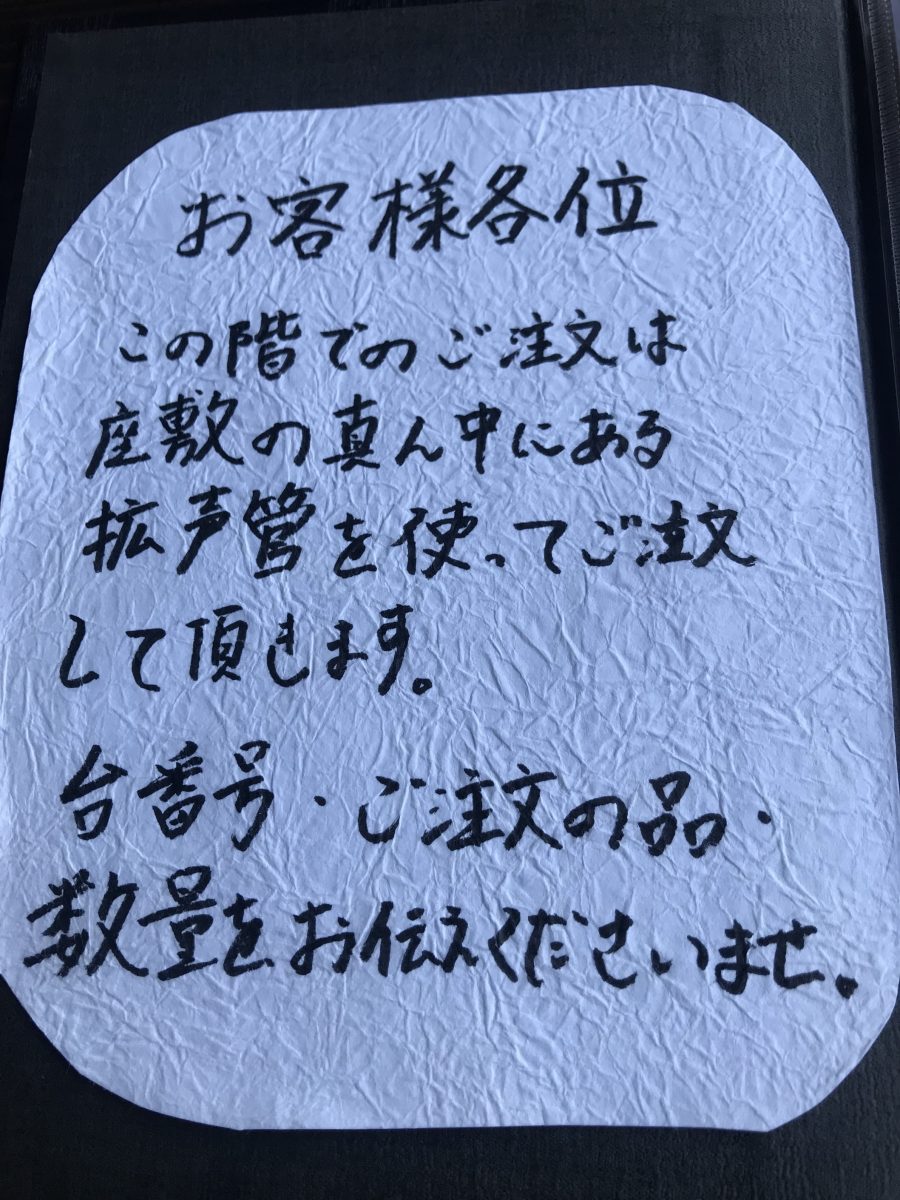 お客様各位
この階でのご注文は
座敷の真ん中にある
拡声管を使ってご注文
して頂きます。
台番号・ご注文の品・
数量をお伝えくださいませ。